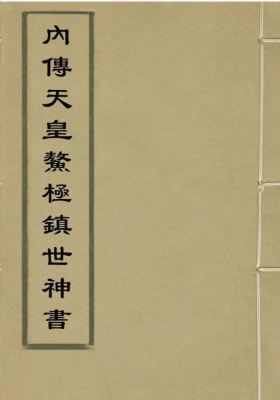 內傳天皇鰲極鎮世神書